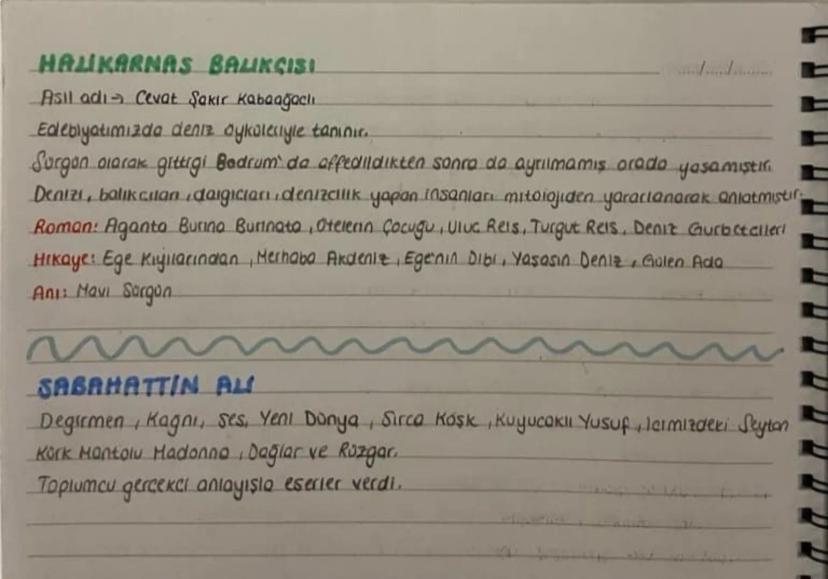 HALİKARNAS BALIKÇISI
../../....
Asıl adı → Cevat Şakir Kabaağaçlı
Edebiyatımızda deniz öyküleriyle tanınır.
Sürgün olarak gittiği Bodrum'da affedildikten sonra da ayrılmamış orada yaşamıştır.
Denizi, balıkçıları, dalgıçları, denizcilik yapan insanları mitolojiden yararlanarak anlatmıştır.
Roman: Aganta Burina Burinata, Ötelerin Çocuğu, Uluç Reis, Turgut Reis, Deniz Gurbetçileri
Hikaye: Ege Kıyılarından, Merhaba Akdeniz, Ege'nin Dibi, Yaşasın Deniz, Gülen Ada
Anı: Mavi Sürgün
SABAHATTİN ALİ
Değirmen, Kağnı, Ses, Yeni Dünya, Sırça Köşk, Kuyucaklı Yusuf, İçimizdeki Şeytan
Kürk Mantolu Madonna, Dağlar ve Rüzgar.
Toplumcu gerçekçi anlayışla eserler verdi.